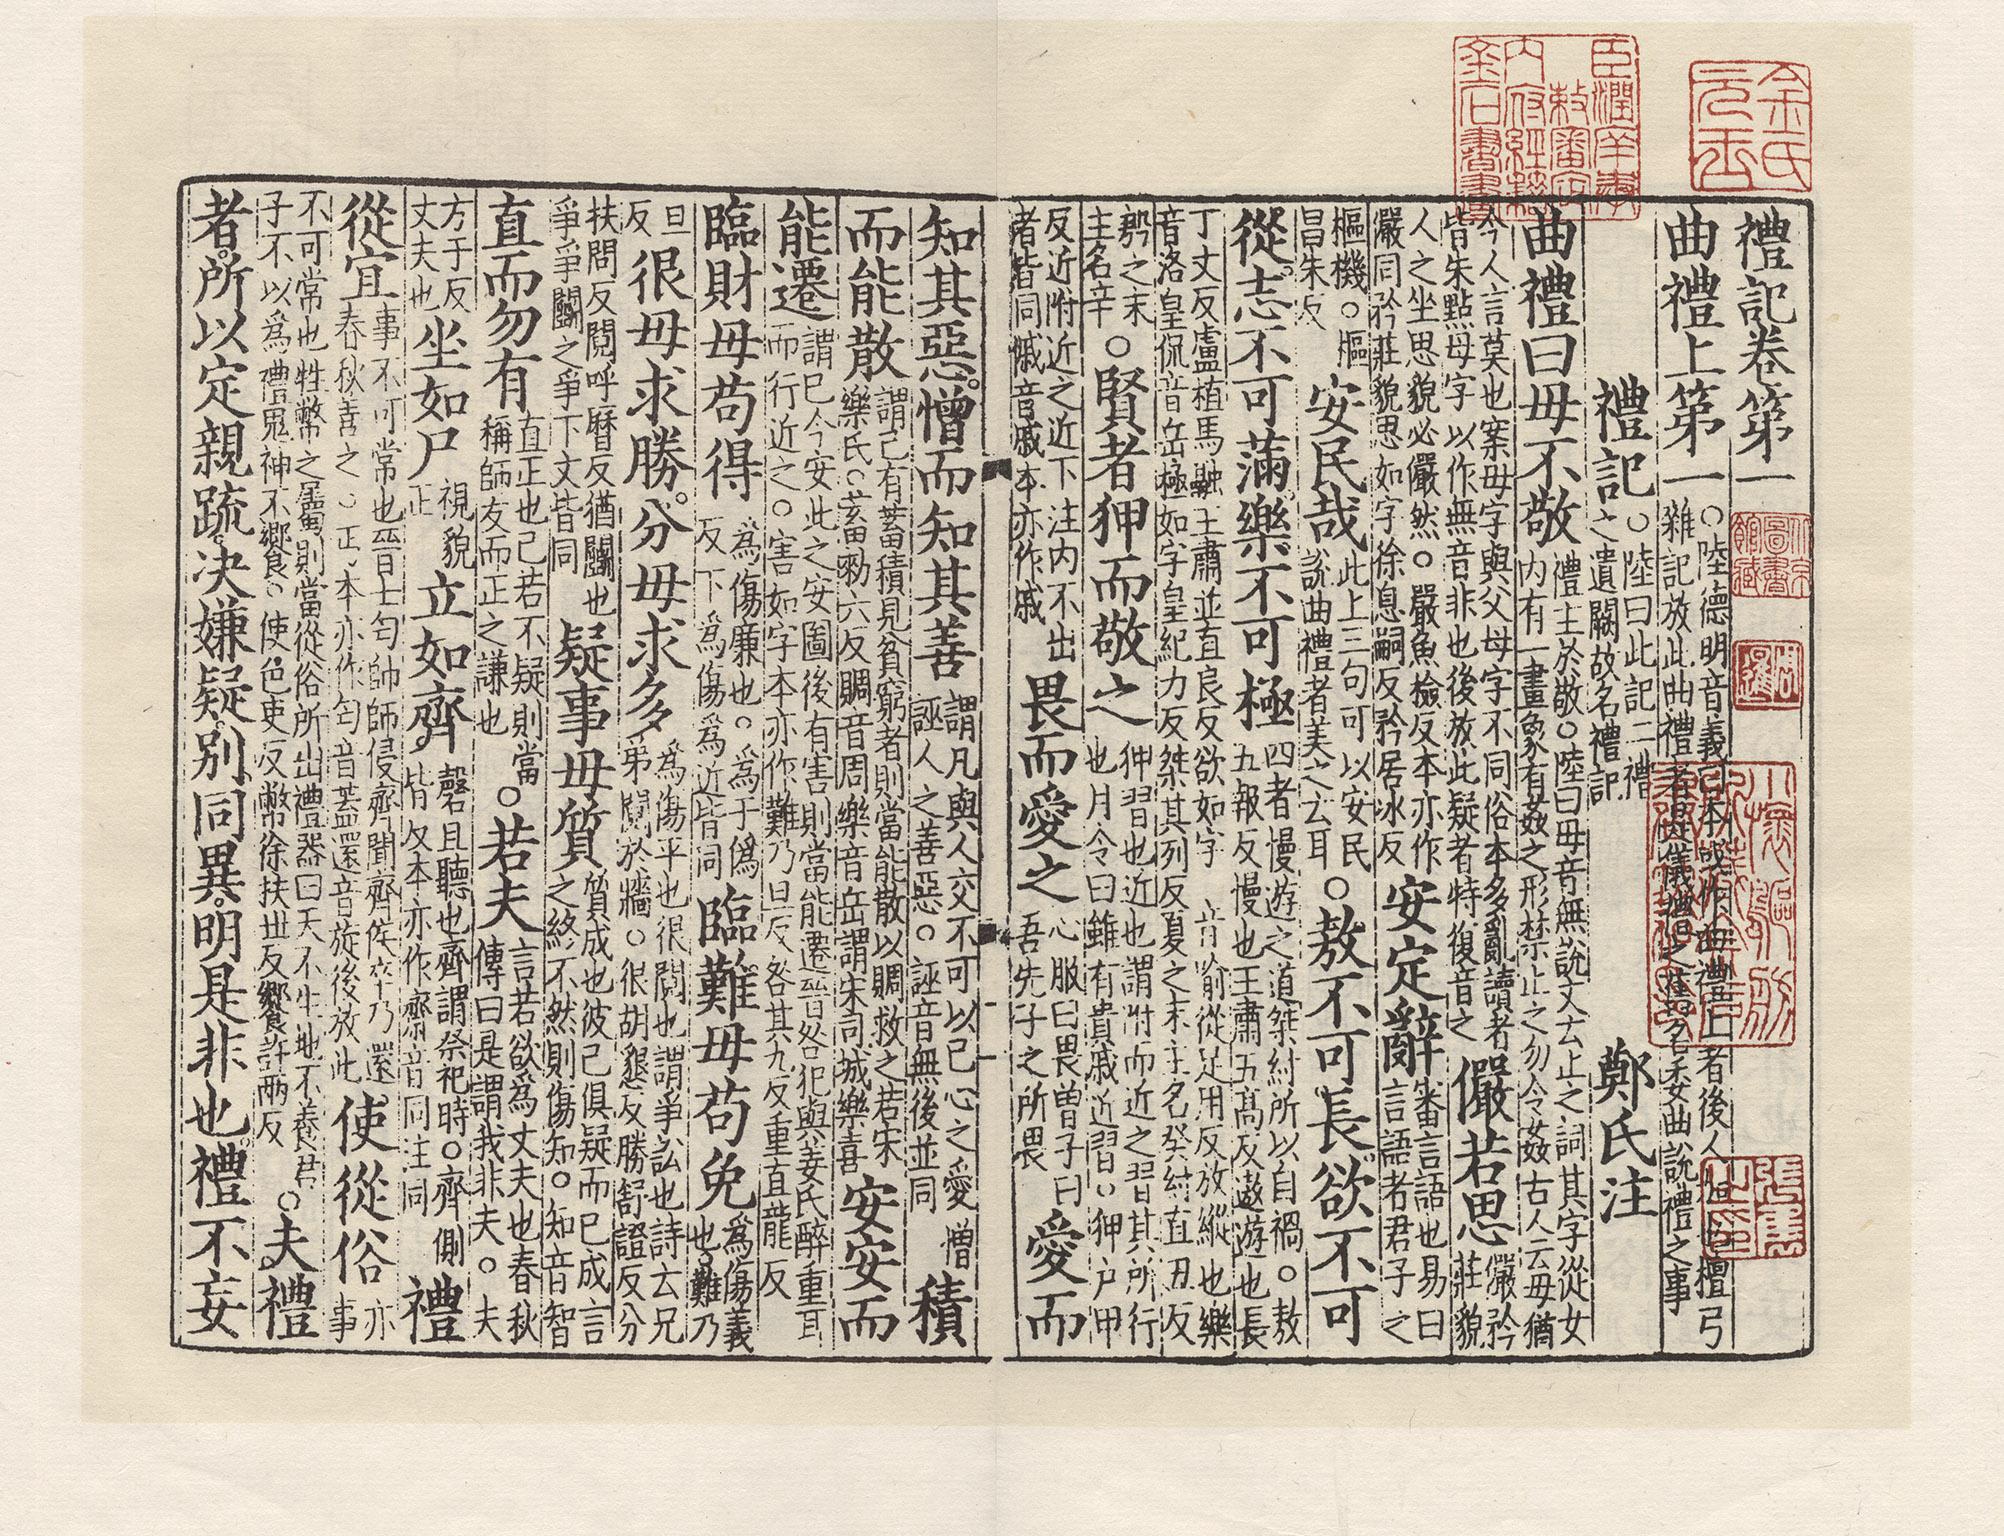 禮記卷第一
曲禮上第一○陸德明音義曰本或作曲禮上者後人加也檀弓雜記放此曲禮者是儀禮之舊名委曲說禮之事
禮記○陸曰此記二禮之遺闕故名禮記 鄭氏注
曲禮曰毋不敬禮主於敬○陸曰毋音無說文云止之詞其字從女內有一畫象有姦之形禁止之勿令姦古人云毋猶
今人言莫也案毋字與父母字不同俗本多亂讀者皆朱點母字以作無音非也後放此疑者特復音之儼若思儼矜莊貌
人之坐思貌必儼然○嚴魚檢反本亦作儼同矜莊貌思如字徐息嗣反矜居冰反安定辭審言語也易曰言語者君子之
樞機○樞昌朱反安民哉此上三句可以安民說曲禮者美之云耳○敖不可長欲不可
從志不可滿樂不可極四者慢遊之道桀紂所以自禍○敖五報反慢也王肅五高反遨遊也長
丁丈反盧植馬融王肅並直良反欲如字一音喻從足用反放縱也樂音洛皇侃音岳極如字皇紀力反桀其列反夏之末主名癸紂直丑反
殷之末主名辛○賢者狎而敬之狎習也近也謂附而近之習其所行也月令曰雖有貴戚近習○狎戶甲
反近附近之近下注內不出者皆同戚音戚本亦作戚畏而愛之心服曰畏曾子曰吾先子之所畏愛而
知其惡憎而知其善謂凡與人交不可以己心之愛憎誣人之善惡○誣音無後並同積
而能散謂己有蓄積見貧窮者則當能散以賙救之若宋樂氏○蓄勑六反賙音周樂音岳謂宋司城樂喜安安而
能遷謂己今安此之安圖後有害則當能遷晉咎犯與姜氏醉重耳而行近之○害如字本亦作難乃旦反咎其九反重直龍反
臨財毋苟得為傷廉也○為于偽反下為傷為近皆同臨難毋苟免為傷義也難乃
旦反很毋求勝分毋求多為傷平也很鬩也謂爭訟也詩云兄弟鬩於牆○很胡懇反勝舒證反分
扶問反鬩呼曆反猶鬪也爭爭鬪之爭下文皆同疑事毋質質成也彼己俱疑而己成言之終不然則傷知○知音智
直而勿有直正也己若不疑則當稱師友而正之謙也○若夫言若欲為丈夫也春秋傳曰是謂我非夫○夫
方于反丈夫也坐如尸視貌正立如齊磬且聽也齊謂祭祀時○齊側皆反本亦作齋音同注同禮
從宜事不可常也晉士匄帥師侵齊聞齊侯卒乃還春秋善之○匄本亦作匃音蓋還音旋後放此使從俗亦事
不可常也牲幣之屬則當從俗所出禮器曰天不生地不養君子不以為禮鬼神不饗○使色吏反幣徐扶世反饗許兩反○夫禮
者所以定親疏決嫌疑別同異明是非也禮不妄
余氏元丞
北京圖書館藏